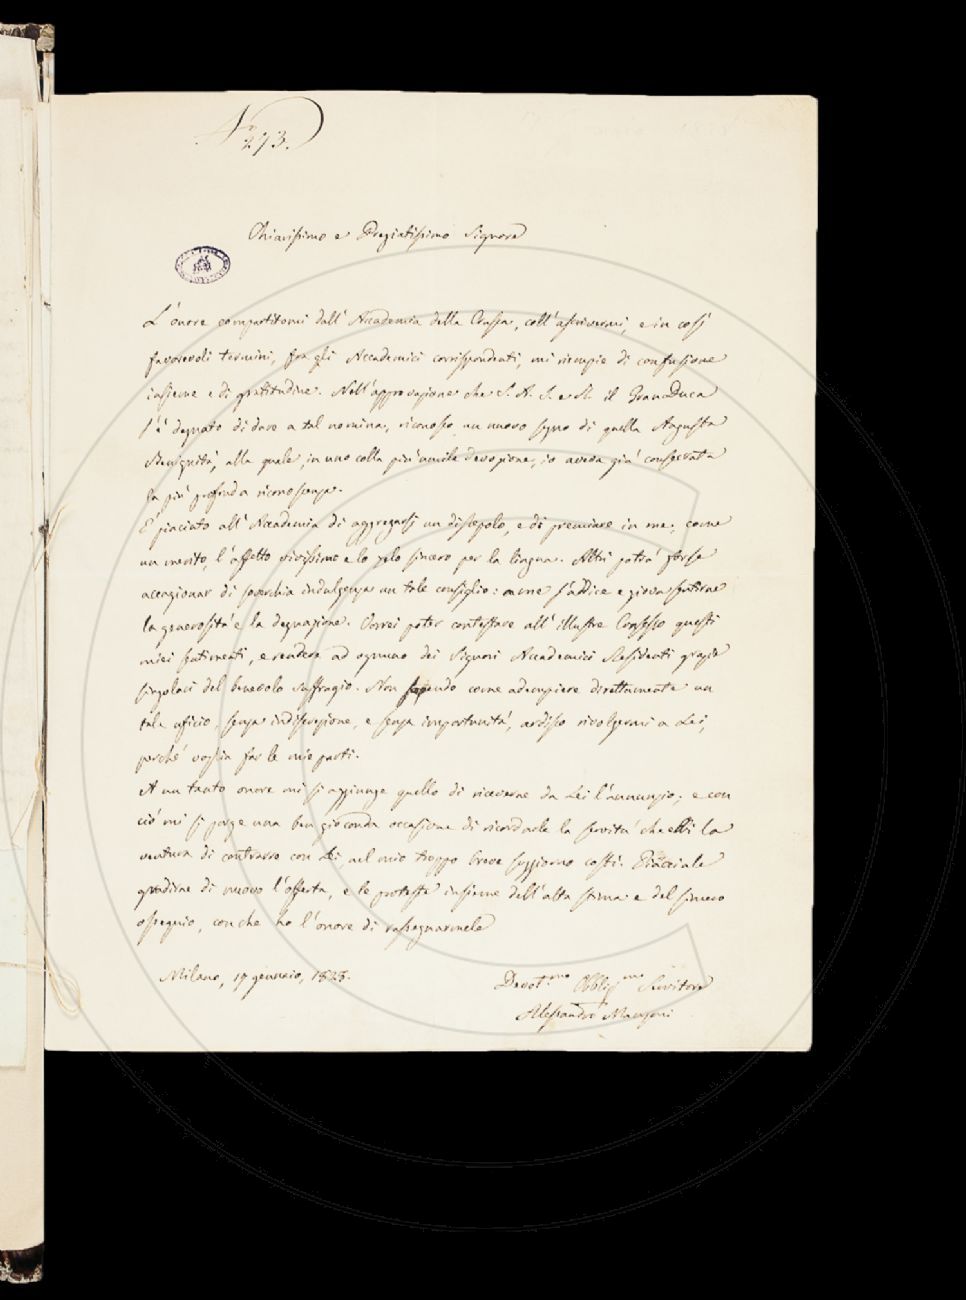 N.° 273.
Chiarissimo e Pregiatissimo Signore
L'onore compartitomi dall'Accademia della Crusca, coll'ascrivermi, e in così
favorevoli termini, fra gli Accademici corrispondenti, mi riempie di confusione
insieme e di gratitudine. Nell'approvazione che S. A. I. e R. il GranDuca
s'è degnato di dare a tal nomina, riconosco un nuovo segno di quella Augusta
Benignità, alla quale, in uno colla più umile devozione, io aveva già consecrata
la più profonda riconoscenza.
È piaciuto all'Accademia di aggregarsi un discepolo, e di premiare in me, come
un merito, l'affetto vivissimo e lo zelo sincero per la lingua. Altri potrà forse
accagionar di soverchia indulgenza un tale consiglio: a me s'addice e giova sentirne
la generosità e la degnazione. Vorrei poter contestare all'illustre Consesso questi
miei sentimenti, e rendere ad ognuno dei Signori Accademici Residenti grazie
singolari del benevolo suffragio. Non sapendo come adempiere direttamente un
tale uficio, senza indiscrezione, e senza importunità, ardisco rivolgermi a Lei,
perché voglia far le mie parti.
A un tanto onore mi si aggiunge quello di riceverne da Lei l'annunzio; e con
ciò mi si porge una ben gioconda occasione di ricordarle la servitù che ebbi la
ventura di contrarre con Lei, nel mio troppo breve soggiorno costì. Piacciale
gradirne di nuovo l'offerta, e le proteste insieme dell'alta stima e del sincero
ossequio, con che ho l'onore di rassegnarmele
Milano, 19 gennaio, 1828.
Devot.mo Obblig.mo Servitore
Alessandro Manzoni